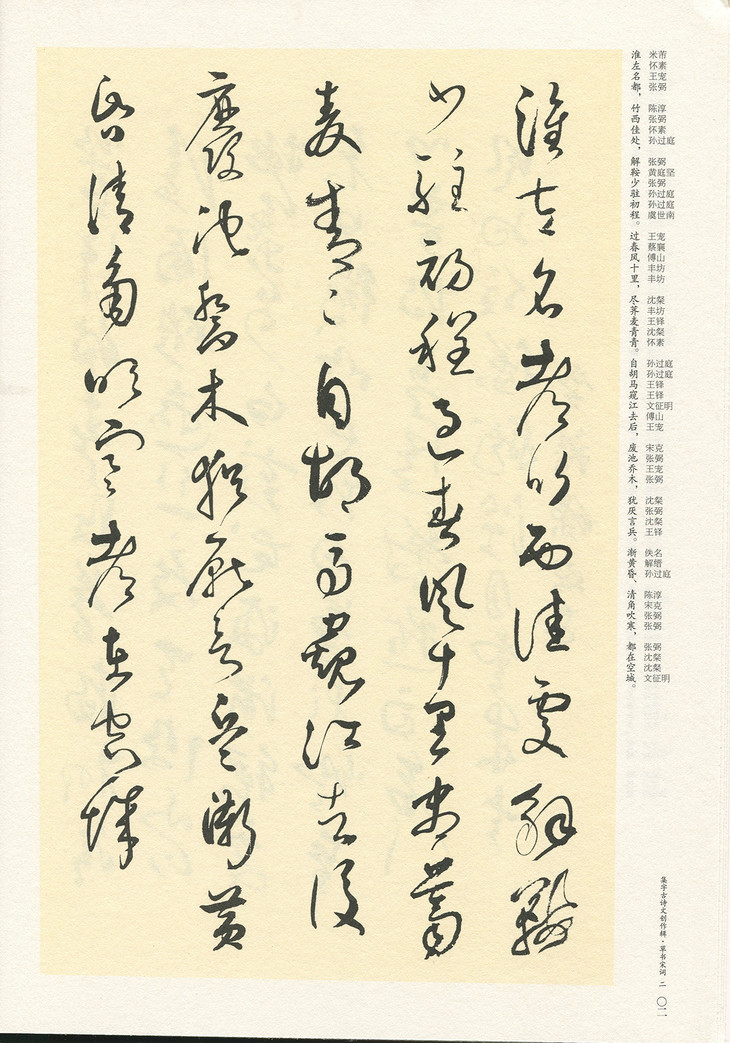 米芾 怀素 王宠 张弼 陈淳 张弼 怀素 孙过庭 张弼 黄庭坚 张弼 孙过庭 孙过庭 虞世南 王宠 蔡襄 傅山 丰坊 丰坊 沈粲 丰坊 王铎 沈粲 怀素 孙过庭 孙过庭 王铎 王铎 文征明 傅山 王宠 宋克 张弼 王宠 张弼 沈粲 张弼 沈粲 王铎 佚名 解缙 孙过庭 陈淳 宋克 张弼 张弼 张弼 沈粲 沈粲 文征明
淮左名都，竹西佳处，解鞍少驻初程。过春风十里，尽荠麦青青。自胡马窥江去后，废池乔木，犹厌言兵。渐黄昏、清角吹寒，都在空城。
集字古诗文创作辑·草书宋词 二 〇二
淮左名都竹西佳處解鞍
少駐初程過春風十里盡薺
麦青〻自胡馬窺江去後
廢池喬木猶厭言兵漸黄
昏清角吹寒都在空城